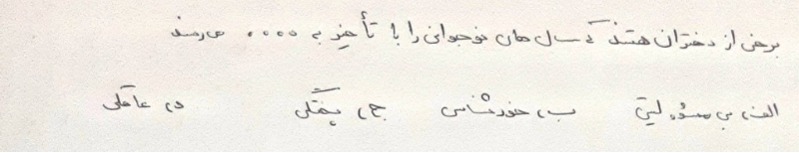 برخی از دختران هستند که سال های نوجوانی را با تأخیر به .... می رسند
الف، بی مسئولیتی ب، خودشناسی ج، پختگی د، عاقلی